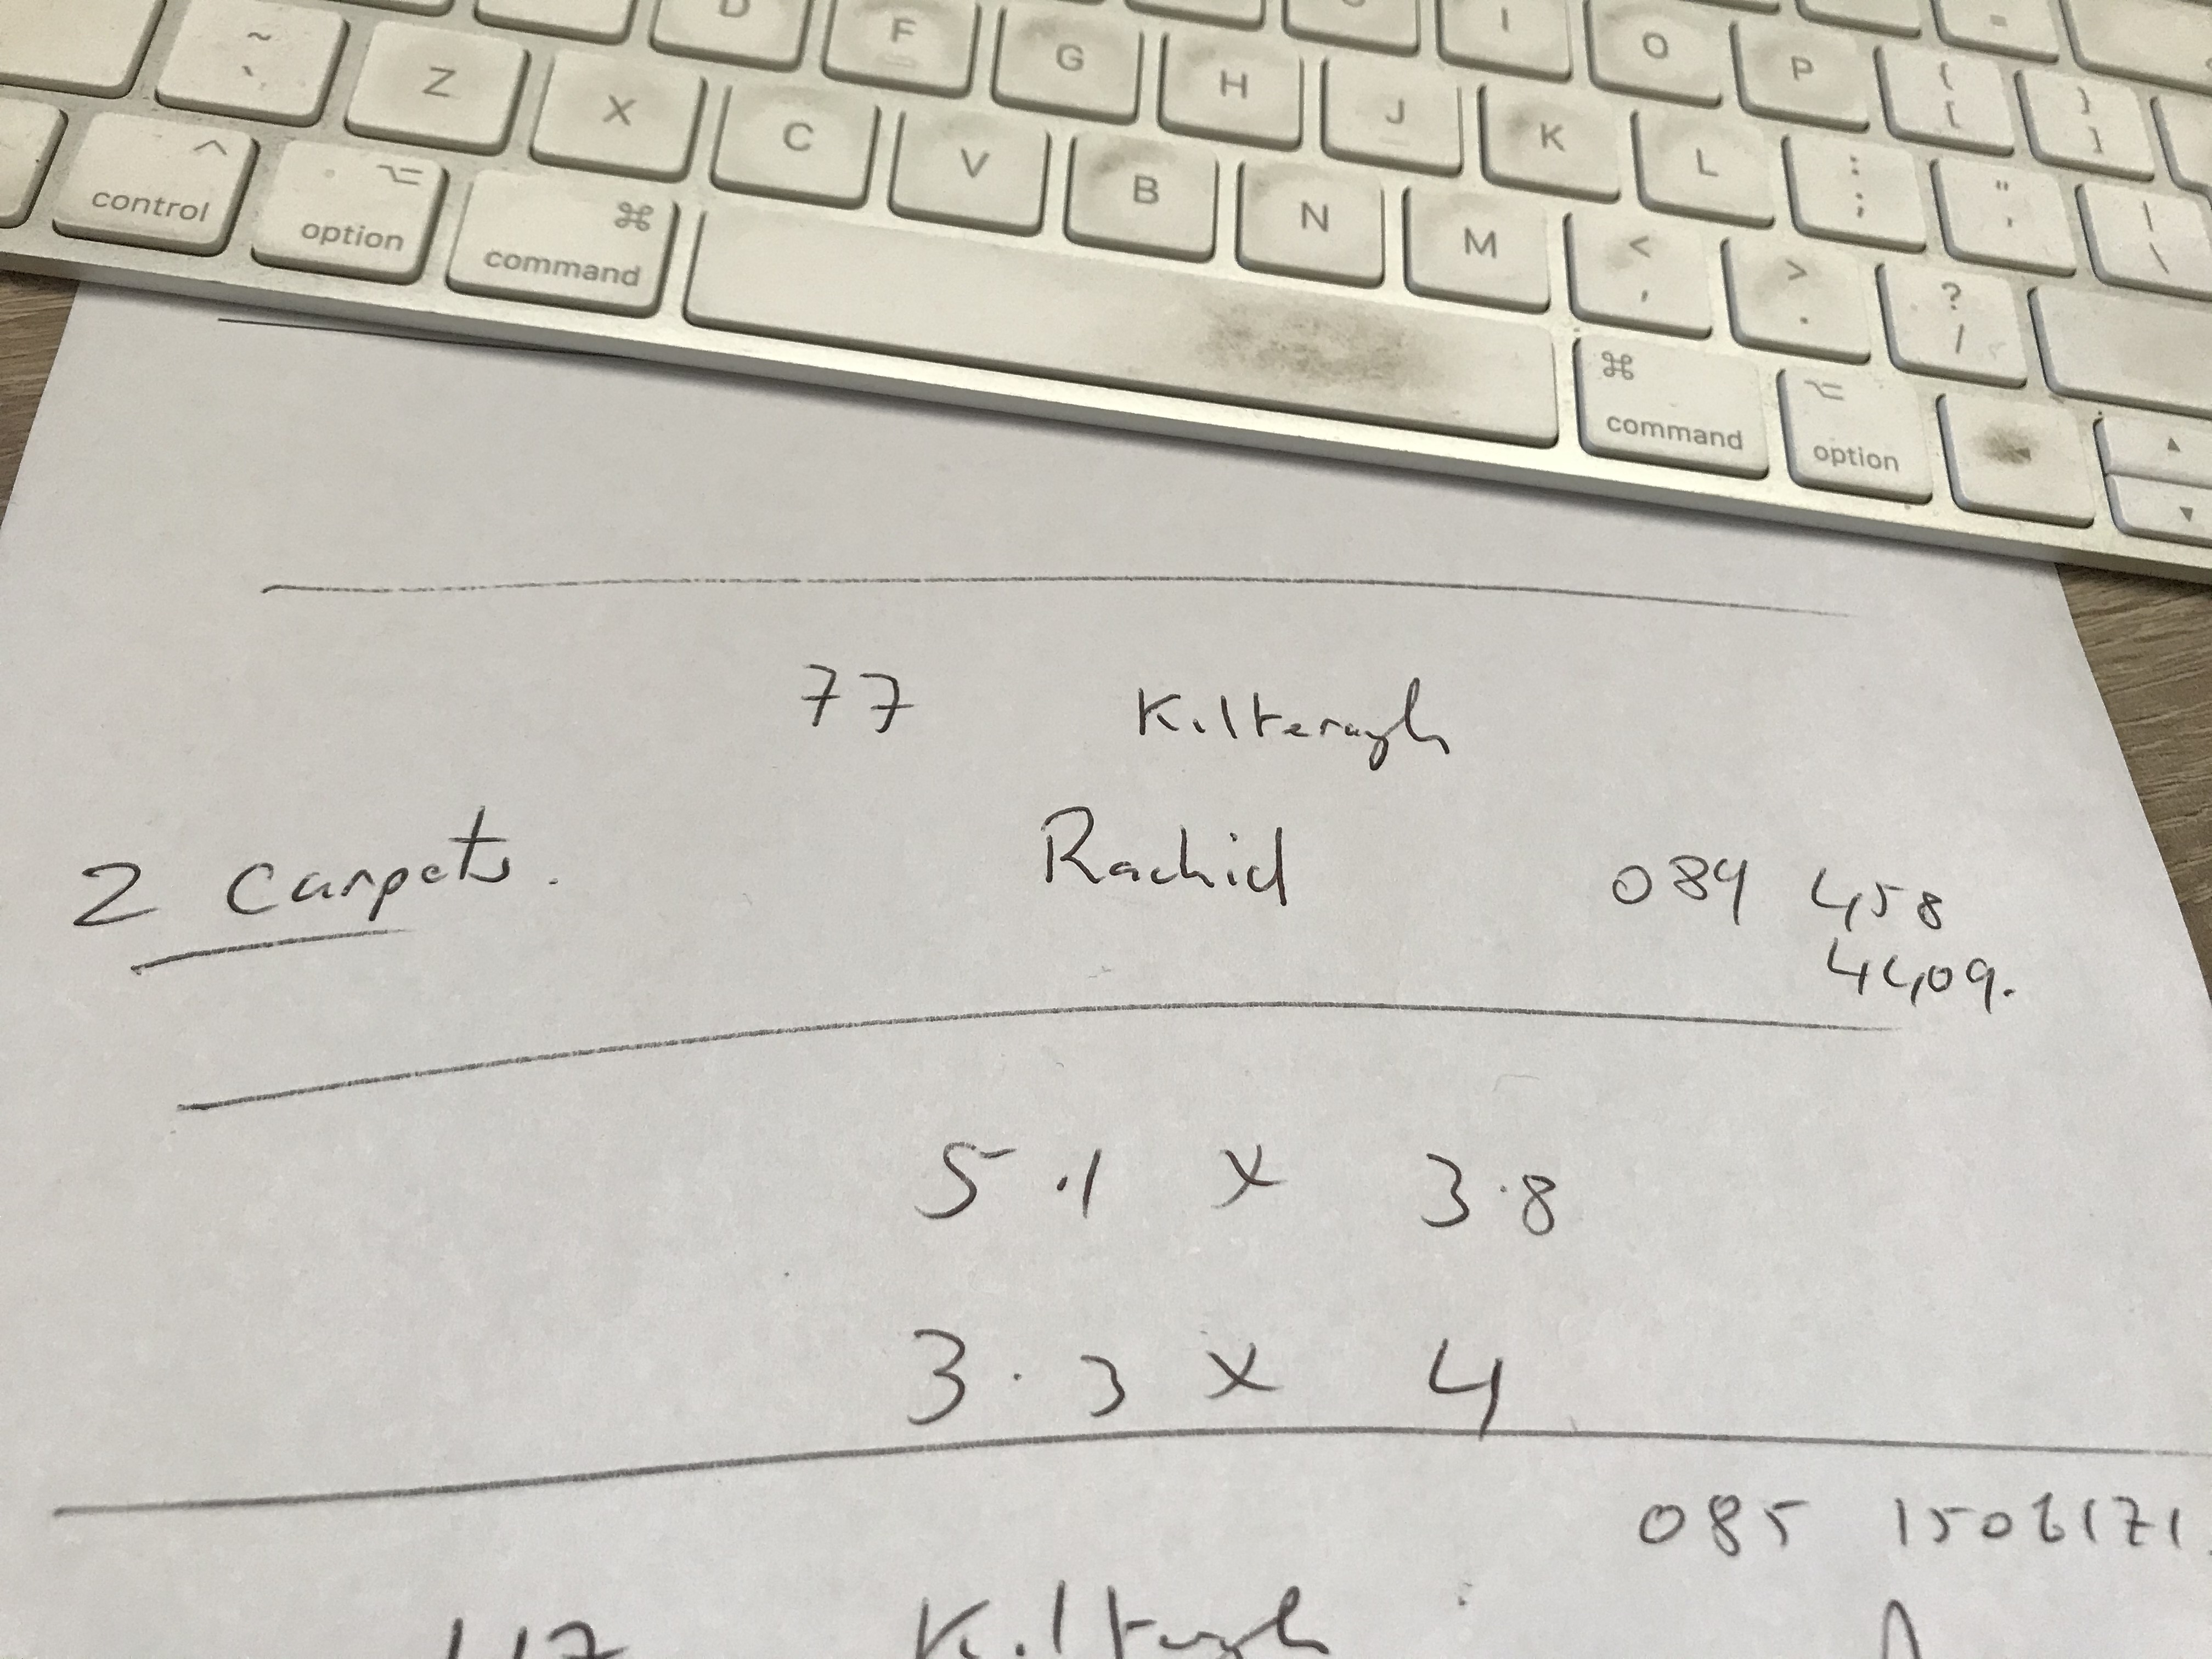 D F G H J K L : ; " ' | \
I O P { [ } ]
~ ` Z X C V B N M < , > . ? /
^ control option ⌘ command ⌘ command option
▲
▼
77 Kilteragh
2 Carpets. Rachid 089 458
4409.
5.1 x 3.8
3.3 x 4
085 1506171.
117 Kilteragh